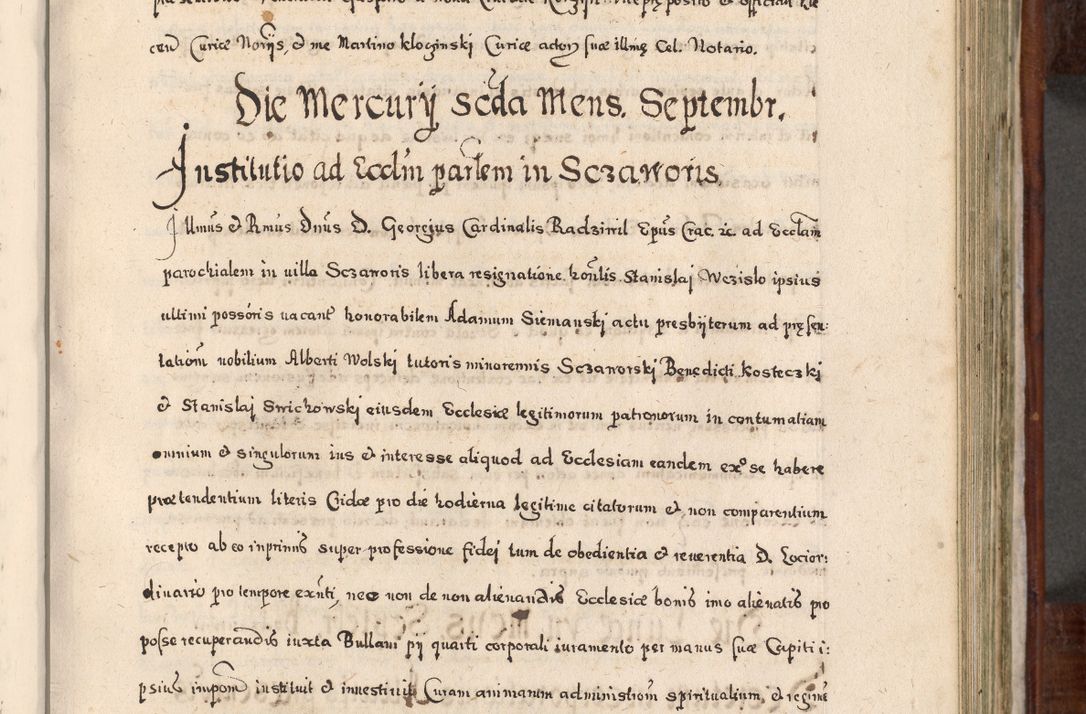 ceu Curiæ Norijs, & me Martino Kloginski Curiæ actor suæ illme Cel. Notario.
Die Mercurij scda Mens. Septembr.
Institutio ad Ecclm parlem in Sczaworis
Illmus & Rmus Dnus D. Georgius Cardinalis Radziwil Epus Crac. &c. ad Ecclam
parochialem in uilla Sczaworis libera resignatione honlis Stanislaj Wezislo ipsius
ultimi possoris uacant honorabilem Adamum Siemauski actu presbijterum ad presen:
tationem nobilium Alberti Wolski tutoris minorennis Sczaworski Benedicti Kosteczkj
& Stanislaj Swichowski eiusdem Ecclesiæ legitimorum patronorum in contumatiam
omnium & singulorum ius & interesse aliquod ad Ecclesiam eandem ex se habere
prætendentium literis Cridæ pro die hodierna legitime citatorum & non comparentium
recepto ab eo inprimis super professione fidei tum de obedientia & reuerentia D. Locior:
dinario pro tempore exnti, nec non de non alienandis Ecclesiæ bonis imo alienatis pro
posse recuperandis iuxta Bullam pij quarti corporali iuramento per manus suæ Capiti i:
psius imponem instituit & inuestiuit Curam animarum administiom spiritualium, & regime